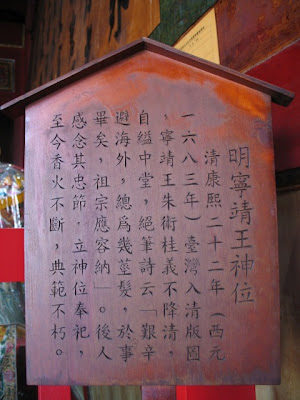 明寧靖王神位
清康熙二十二年（西元
一六八三年）臺灣入清版圖
，寧靖王朱術桂義不降清，
自縊中堂，絕筆詩云「艱辛
避海外，總為幾莖髮，於事
畢矣，祖宗應容納」。後人
感念其忠節，立神位奉祀，
至今香火不斷，典範不朽。